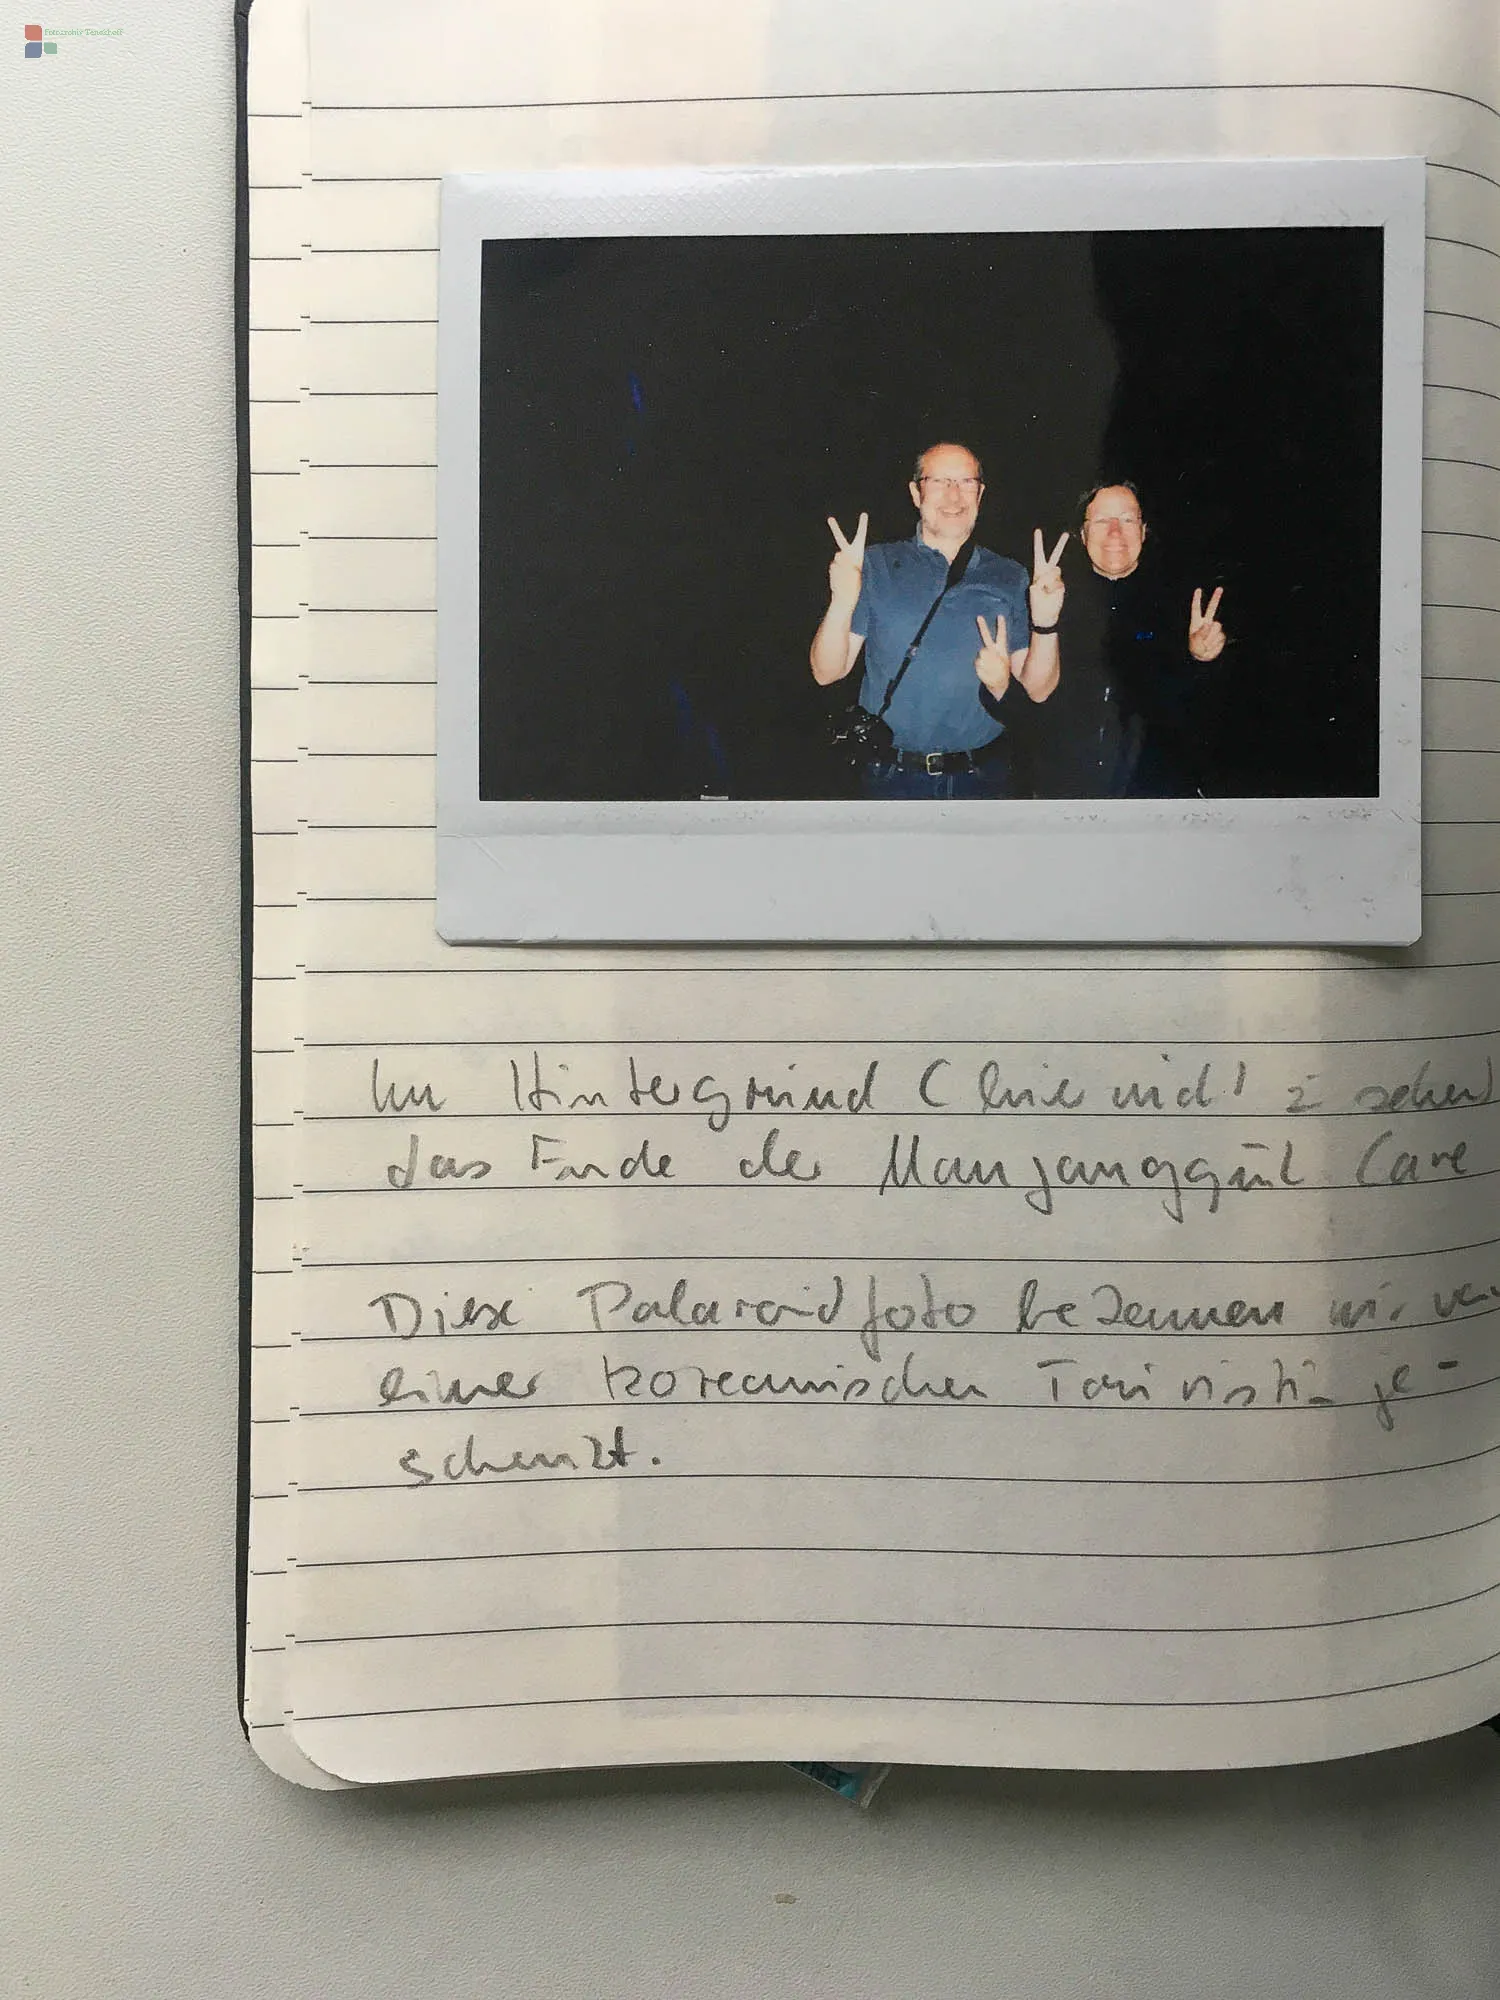 Fotoarchiv Tenckhoff
Im Hintergrund (hier nicht z sehen)
das Ende der Manjanggul Cave
Diese Polaroidfoto bekommen wir von
einer koreanischen Touristin ge-
schenkt.